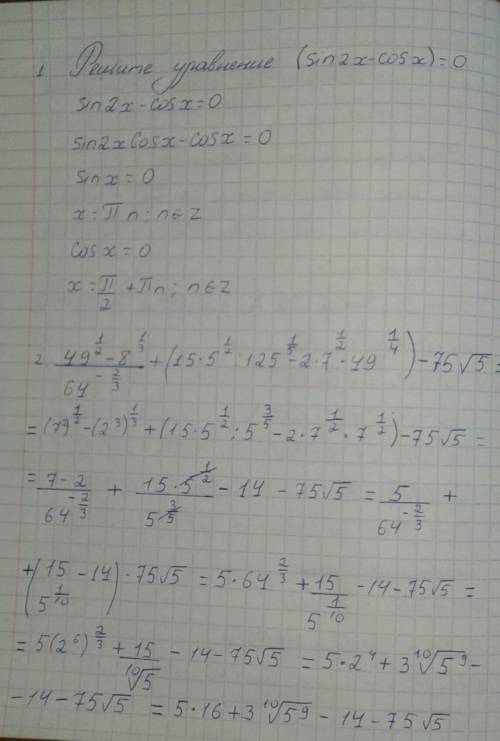 1 Решите уравнение (sin2x-cosx)=0
sin2x-cosx=0
sin2xcosx-cosx=0
sinx=0
x=πn; n∈Z
cosx=0
x=π/2+πn; n∈Z
2 (49^(1/2)-8^(1/3))/64^(-2/3)+(15·5^(1/2):125^(1/5)-2·7^(1/2)·49^(1/4))-75√5=
=(7²)^(1/2)-(2³)^(1/3)+(15·5^(1/2):5^(3/5)-2·7^(1/2)·7^(1/2))-75√5=
=(7-2)/64^(-2/3)+(15·5^(1/2))/5^(3/5)-14-75√5=5/64^(-2/3)+
+(15/5^(1/10)-14)-75√5=5·64^(2/3)+15/5^(1/10)-14-75√5=
=5(2⁶)^(2/3)+15/¹⁰√5-14-75√5=5·2⁴+3¹⁰√5⁹-
-14-75√5=5·16+3¹⁰√5⁹-14-75√5